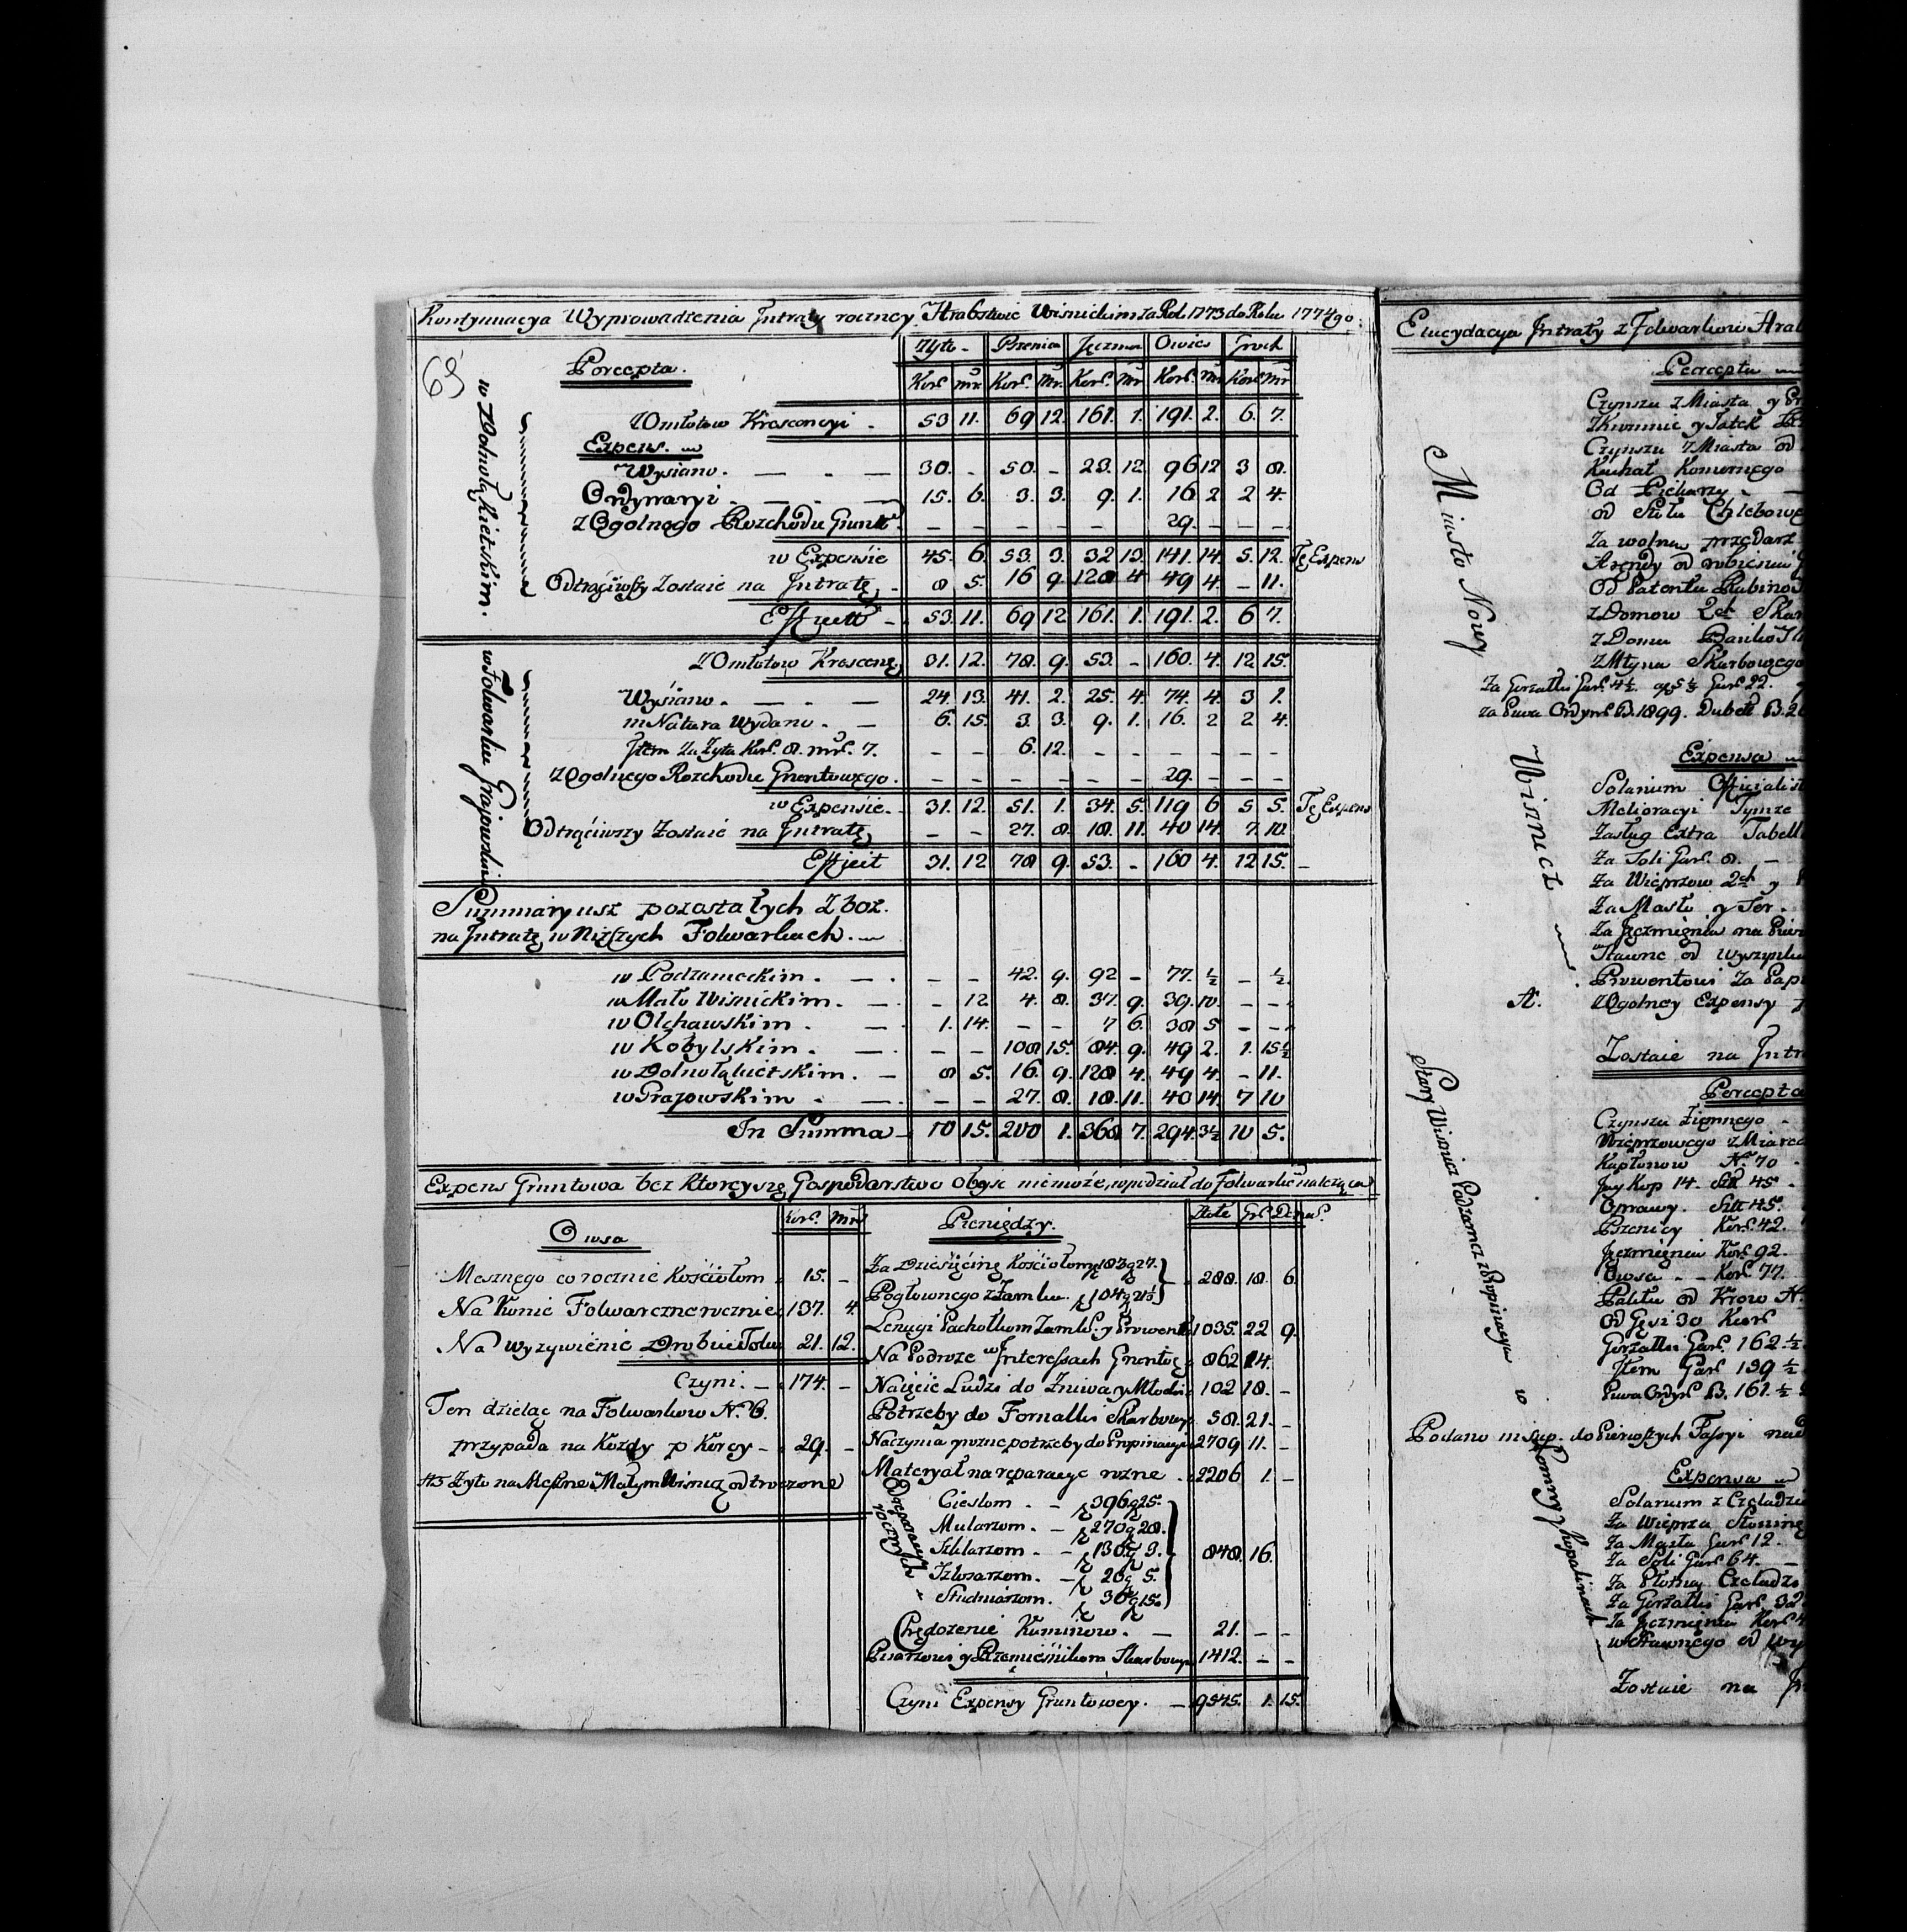 Kontynuacya Wyprowadzenia Intraty roczney Hrabstwie Wisnickim za Rok 1773 do Roku 1774go.
65
Percepta.
Zyto Przenica Jęczm Owies Groch
Kor. Mr. Kor. Mr. Kor. Mr. Kor. Mr. Kor. Mr.
w Dolnołąkietskim.
Z Omłotow Krescencyi 53 11. 69 12. 161. 1. 191. 2. 6. 7.
Expens.
Wysiano. 30. - 50. - 23. 12. 96 12 3 8.
Ordynaryi 15. 6. 3. 3. 9. 1. 16 2 2 4.
z Ogolnego Rozchodu Grunt. - - - - - - 29. - - -
w Expensie 45. 6. 53. 3. 32 13. 141. 14. 5. 12. Tę Expens
Odtrąciwszy Zostaie na Intratę 8 5. 16 9 128 4 49 4 - 11.
Efficit 53. 11. 69 12 161. 1. 191. 2. 6 7.
w Folwarku Grajowskim
Z Omłotow Krescenc. 31. 12. 78. 9. 53. - 160. 4. 12 15.
Wysiano. 24. 13. 41. 2. 25. 4. 74. 4. 3 1.
in Natura Wydano. 6. 15. 3. 3. 9. 1. 16. 2 2 4.
Item za Zyta Kor. 8. mr. 7. - - 6. 12. - - - - - -
z Ogolnego Rozchodu Gruntowego. - - - - - - 29. - - -
w Expensie. 31. 12. 51. 1. 34. 5. 119 6. 5 5. Tę Expens
Odtrąciwszy Zostaie na Intratę - - 27. 8. 18. 11. 40 14. 7. 10.
Efficit 31. 12 78 9. 53. - 160 4. 12 15. -
Summaryusz pozostałych Zboz.
na Intratę w Niższych Folwarkach.
w Podzameckim. - - 42. 9. 92 - 77. ½ - ½.
w Mało Wisnickim. - 12 4. 8. 37. 9. 39. 10. - -
w Olchawskim. 1. 14. - - 7 6. 38 5 - -
w Kobylskim. - - 108 15. 84. 9. 49 2. 1. 15½
w Dolnołąkietskim. 8 5. 16. 9. 128 4. 49 4. - 11.
w Grajowskim - - 27. 8. 18. 11. 40 14. 7 10
In Summa 10 15. 200 1. 368 7. 294. 3½ 10 5.
Expens Gruntowa bez ktorey się Gospodarstwo obyść nie może, w podział do Folwarkow należąca
Owsa
Kor. Mr.
Mesznego co rocznie Kościołom 15. -
Na Konie Folwarczne rocznie 137. 4.
Na wyzywienie Drobiu Folw. 21. 12.
Czyni. 174. -
Ten dzieląc na Folwarkow N. 6.
przypada na Kozdy p Korcy 29. -
Zyto na Meszne w Małym Wisniczu odtroczone
Pieniędzy.
Złote Gr. Denar.
Za Dziesięcinę Kościołom 183 g 27.
Pogłownego z Zamku. 104 g 21½ 288. 18. 6.
Lenugi Pachołkom Zamk. y Prowent. 1035. 22 9.
Na Podroze w Interessach Gront. 862 14.
Naięcie Ludzi do Zniwa y Młocki. 102 18. -
Potrzeby do Fornalki Skarbowey 58. 21. -
Naczynia y rozne potrzeby do Propinacyi 2709 11. -
Materyał na reparacye rozne 2206 1. -
Od reparacyi rocznych
Cieslom. 396 g 25.
Mularzom. 270 g 28.
Szklarzom. 130 g 3.
Szlosarzom. 20 g 5.
Studniarzom. 30 g 15.
848. 16.
Chędozenie Kominow. 21. - -
Pisarzowi y Rzemieśnikom Skarbowym 1412. - -
Czyni Expensy Gruntowey. 9545. 1. 15.
Elucydacya Intraty z Folwarkow Hrab
Percepta
Miasto Nowy Wisnicz
Czynszu z Miasta y
Z Kramnic y Jatek
Czynszu z Miasta od
Kuchał Komornego
Od Piekarzy
od Stołu Chlebowe
Za wolna przedarz
Arendy od robienia
Od Patentu Rabinos
z Domow 2ch Skar
z Domu
z Młyna Skarbowego
Za Gorzałki Gar. 4½.
za Piwa Ordyn. B. 1899. Dubelt B.
Expensa
Solarium Officialist
Melioracyi Tymze
Zasług Extra Tabell
Za Soli Gar. 8.
Za Wieprzow 2ch y
Za Masło y Ser.
Za Jęczmienia na Piwo
Stawne od wyszynku
Prowentowi Za Pap
A. z Ogolney Expensy
Zostaie na Intr
Percepta
Stary Wisnicz Podzamcze z Propinacya w
Czynszu Ziemnego
Wieprzowego z Miarec
Kapłonow N. 70
Jay Kop 14. Szt 45.
Oprawy. Szt 45.
Przenicy Kor. 42.
Jęczmienia Kor. 92.
Owsa Kor. 77.
Pobitu od Krow N.
od Gęsi 30 Kur
Gorzałki Gar. 162½
Item Gar 139½
Piwa Ordyn. B. 161.½
Podano in sup. do Pierwszych Tassyi
Expensa
Solarium z Czeladzi
Za Wieprza Słoninę
Za Masła Gar. 12.
Za Soli Gar. 64.
Za Płotna Czeladzi
Za Gorzałki Gar. 32
Za Jęczmienia Kor.
Zostaie na